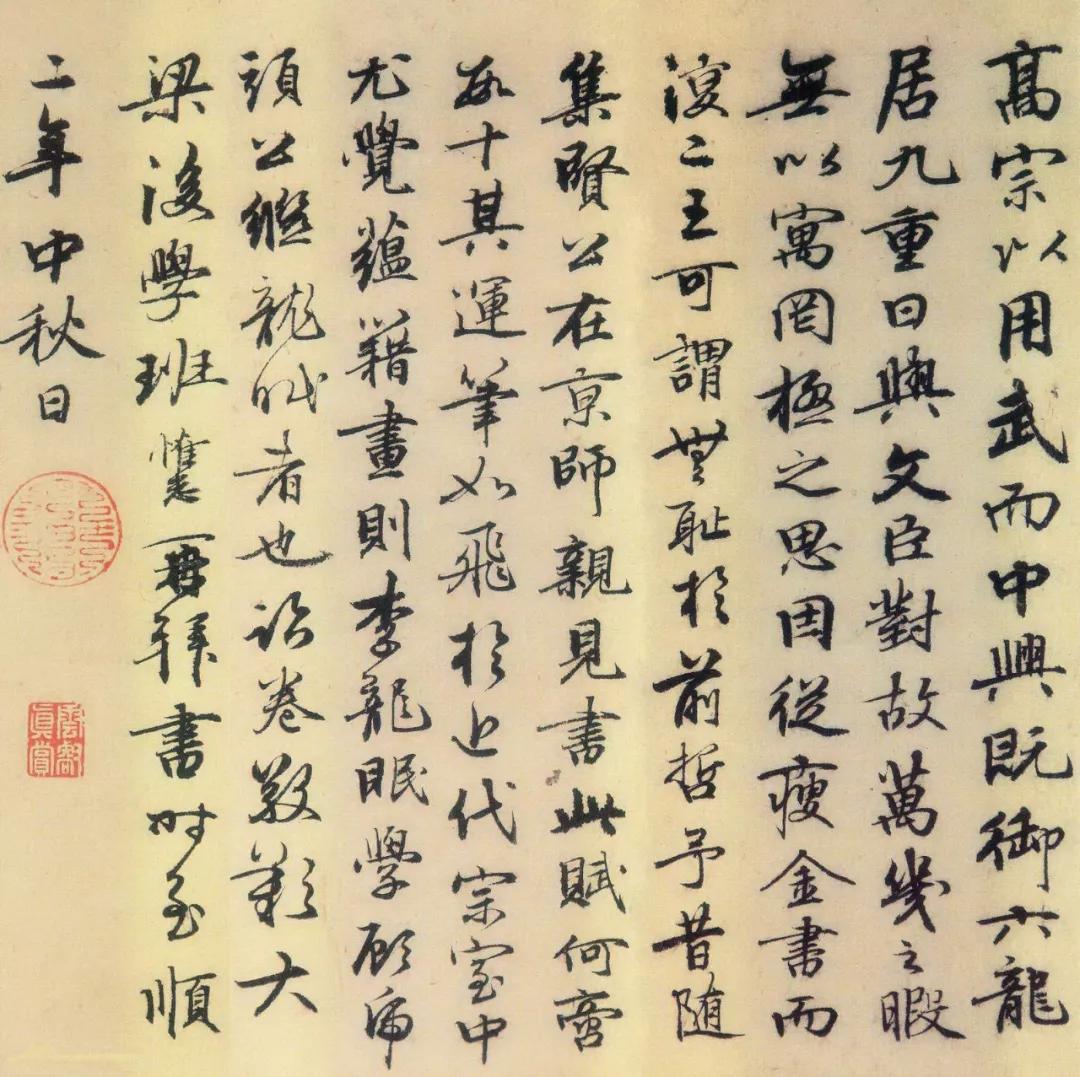 高宗以用武而中興既御六龍
居九重日與文臣對故萬幾之暇
無以寓罔極之思因從瘦金書而
復二王可謂無恥於前哲予昔随
集賢公在京師親見書此賦何啻
數十其運筆如飛於近代宗室中
尤覺蘊藉畫則李龍眠學顧虎
頭公繼龍眠者也卷敬歎大
梁後學班惟志再拜書時至順
二年中秋日
眞賞